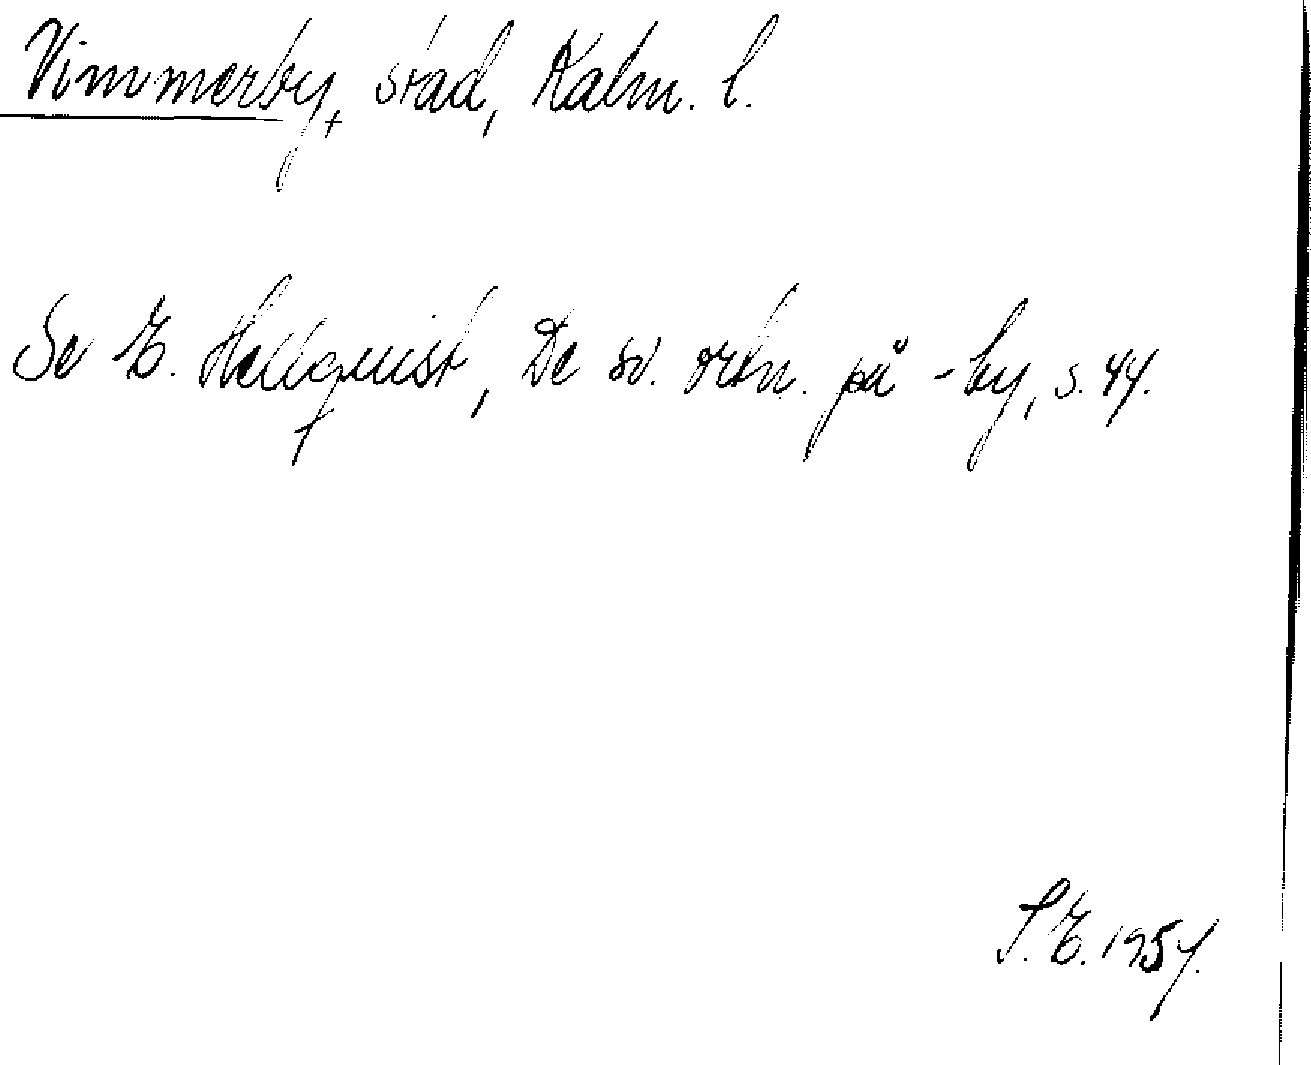 Vimmerby, stad, Kalm. l.
Se E. Hellquist, De sv. ortn. på -by, s. 44.
S. E. 1954.